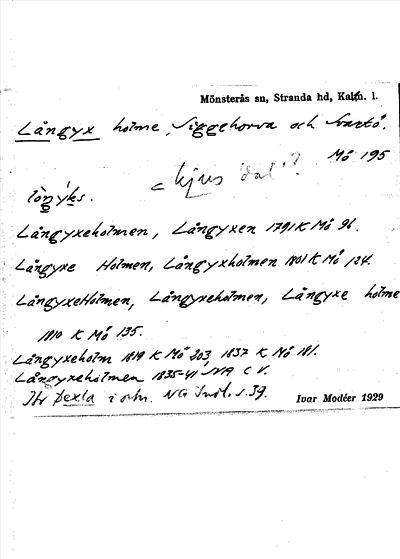 Mönsterås sn, Stranda hd, Kalm. l.
Långyx holme, Siggehorva och Svartö.
Mö 195
lòṉgýḵs.
Långyxeholmen, Långyxen 1791 K Mö 96.
Långyxe Holmen, Långyxholmen 1801 K Mö 124.
LångyxeHolmen, Långyxeholmen, Långyxe holme
1810 K Mö 135.
Långyxeholm 1819 K Mö 203, 1837 K Mö 181.
Långyxeholmen 1835-41 C V.
Jfr i NG s. 39.
Ivar Modéer 1929